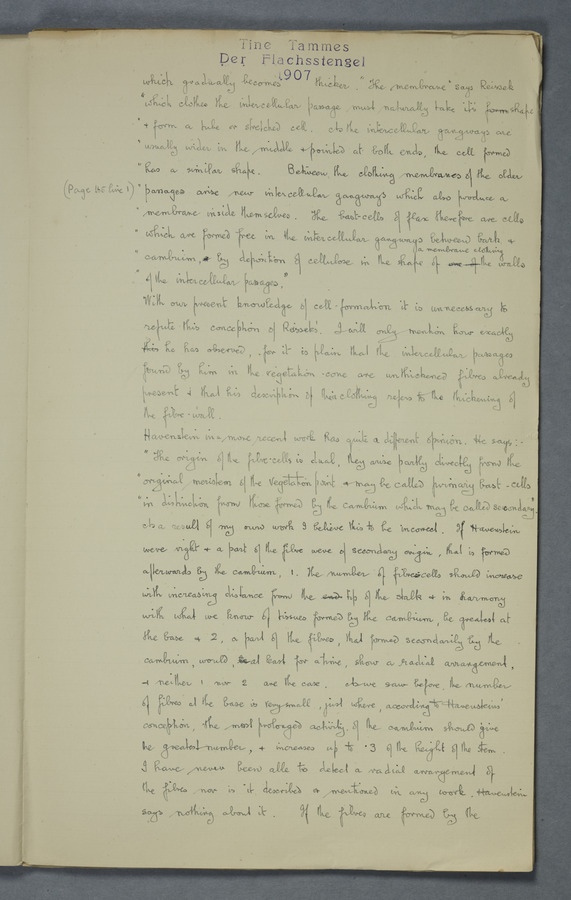 Tine Tammes
Der Flachsstengel
1907
which gradually becomes thicker. "The membrane" says Reissek
"which clothes the intercellular passage must naturally take its form shape
"+ form a tube or stretched cell. As the intercellular gangways are
"usually wider in the middle + pointed at both ends, the cell formed
"has a similar shape. Between the clothing membranes of the older
(Page line 1) "passages arise new intercellular gangways which also produce a
"membrane inside themselves. The bast-cells of flax therefore are cells
"which are formed free in the intercellular gangways between bark +
a membrane clothing
"cambium, by deposition of cellulose in the shape of the walls
"of the intercellular passages."
With our present knowledge of cell-formation it is unnecessary to
refute this conception of I will only mention how exactly
this he has observed, for it is plain that the intercellular passages
found by him in the vegetation-cone are unthickened fibres already
present + that his description of this clothing refers to the thickening of
the fibre-wall.
Havenstein in a more recent work has quite a different opinion. He says:-
"The origin of the fibre-cells is dual, they arise partly directly from the
"original meristem of the vegetation point + may be called primary bast-cells
"in distinction from those formed by the cambium which may be called secondary".
As a result of my own work I believe this to be incorrect. If Havenstein
were right + a part of the fibre were of secondary origin, that is formed
afterwards by the cambium, 1. the number of fibrescells should increase
with increasing distance from the end tip of the stalk + in harmony
with what we know of tissues formed by the cambium, be greatest at
the base + 2, a part of the fibres, that formed secondarily by the
cambium, would, at least for a time, show a radial arrangement,
+ neither 1 nor 2 are the case. As we saw before, the number
of fibres at the base is very small, just where, according to Havensteins'
conception, the most prolonged activity of the cambium should give
the greatest number, + increases up to ·3 of the height of the stem.
I have never been able to detect a radial arrangement of
the fibres nor is it described or mentioned in any work, Havenstein
says nothing about it. If the fibres are formed by the